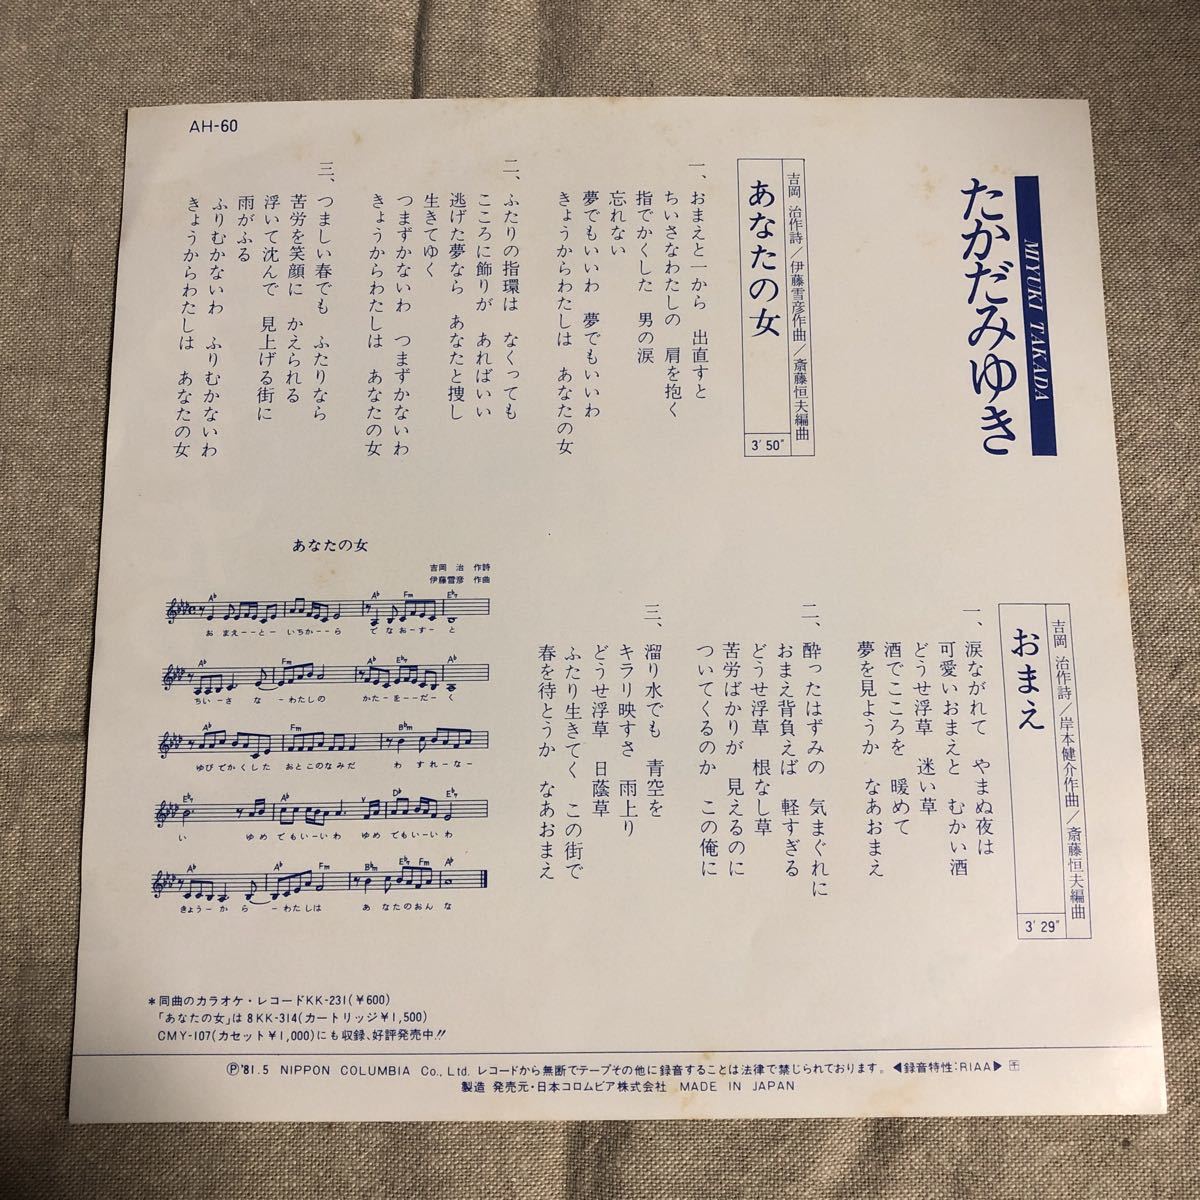 AH-60
MIYUKI TAKADA
たかだみゆき
吉岡 治作詩/伊藤雪彦作曲/斎藤恒夫編曲
あなたの女
3′50″
一、おまえと一から 出直すと
ちいさなわたしの 肩を抱く
指でかくした 男の涙
忘れない
夢でもいいわ 夢でもいいわ
きょうからわたしは あなたの女
二、ふたりの指環は なくっても
こころに飾りが あればいい
逃げた夢なら あなたと捜し
生きてゆく
つまずかないわ つまずかないわ
きょうからわたしは あなたの女
三、つましい春でも ふたりなら
苦労を笑顔に かえられる
浮いて沈んで 見上げる街に
雨がふる
ふりむかないわ ふりむかないわ
きょうからわたしは あなたの女
吉岡 治作詩/岸本健介作曲/斎藤恒夫編曲
おまえ
3′29″
一、涙ながれて やまぬ夜は
可愛いおまえと むかい酒
どうせ浮草 迷い草
酒でこころを 暖めて
夢を見ようか なあおまえ
二、酔ったはずみの 気まぐれに
おまえ背負えば 軽すぎる
どうせ浮草 根なし草
苦労ばかりが 見えるのに
ついてくるのか この俺に
三、溜り水でも 青空を
キラリ映すさ 雨上り
どうせ浮草 日蔭草
ふたり生きてく この街で
春を待とうか なあおまえ
あなたの女
吉岡 治 作詩
伊藤雪彦 作曲
A♭ Fm E♭7
お まえ--と- いちか--ら でなお-す- と
A♭ Fm A♭ E♭7 A♭
ちい-さ な- -わたしの かた-を--だ- く
A♭ Fm B♭m
ゆびでかくした おとこのなみだ わ すれ-な-
E♭7 A♭ D♭ E♭7
い ゆめ でもい-いわ ゆめ でもい-い わ
A♭ Fm B♭m E♭7 Fm A♭
きょう-から- -わたしは あ なたのおん な
*同曲のカラオケ・レコードKK-231(¥600)
「あなたの女」は8KK-314(カートリッジ¥1,500)
CMY-107(カセット¥1,000)にも収録、好評発売中!!
Ⓟ'81.5 NIPPON COLUMBIA Co., Ltd. レコードから無断でテープその他に録音することは法律で禁じられております。◀録音特性:RIAA▶
製造 発売元・日本コロムビア株式会社 MADE IN JAPAN